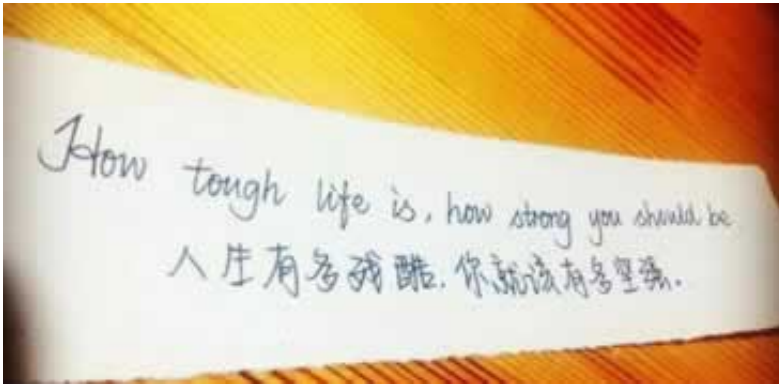 How tough life is, how strong you should be
人生有多残酷,你就该有多坚强.